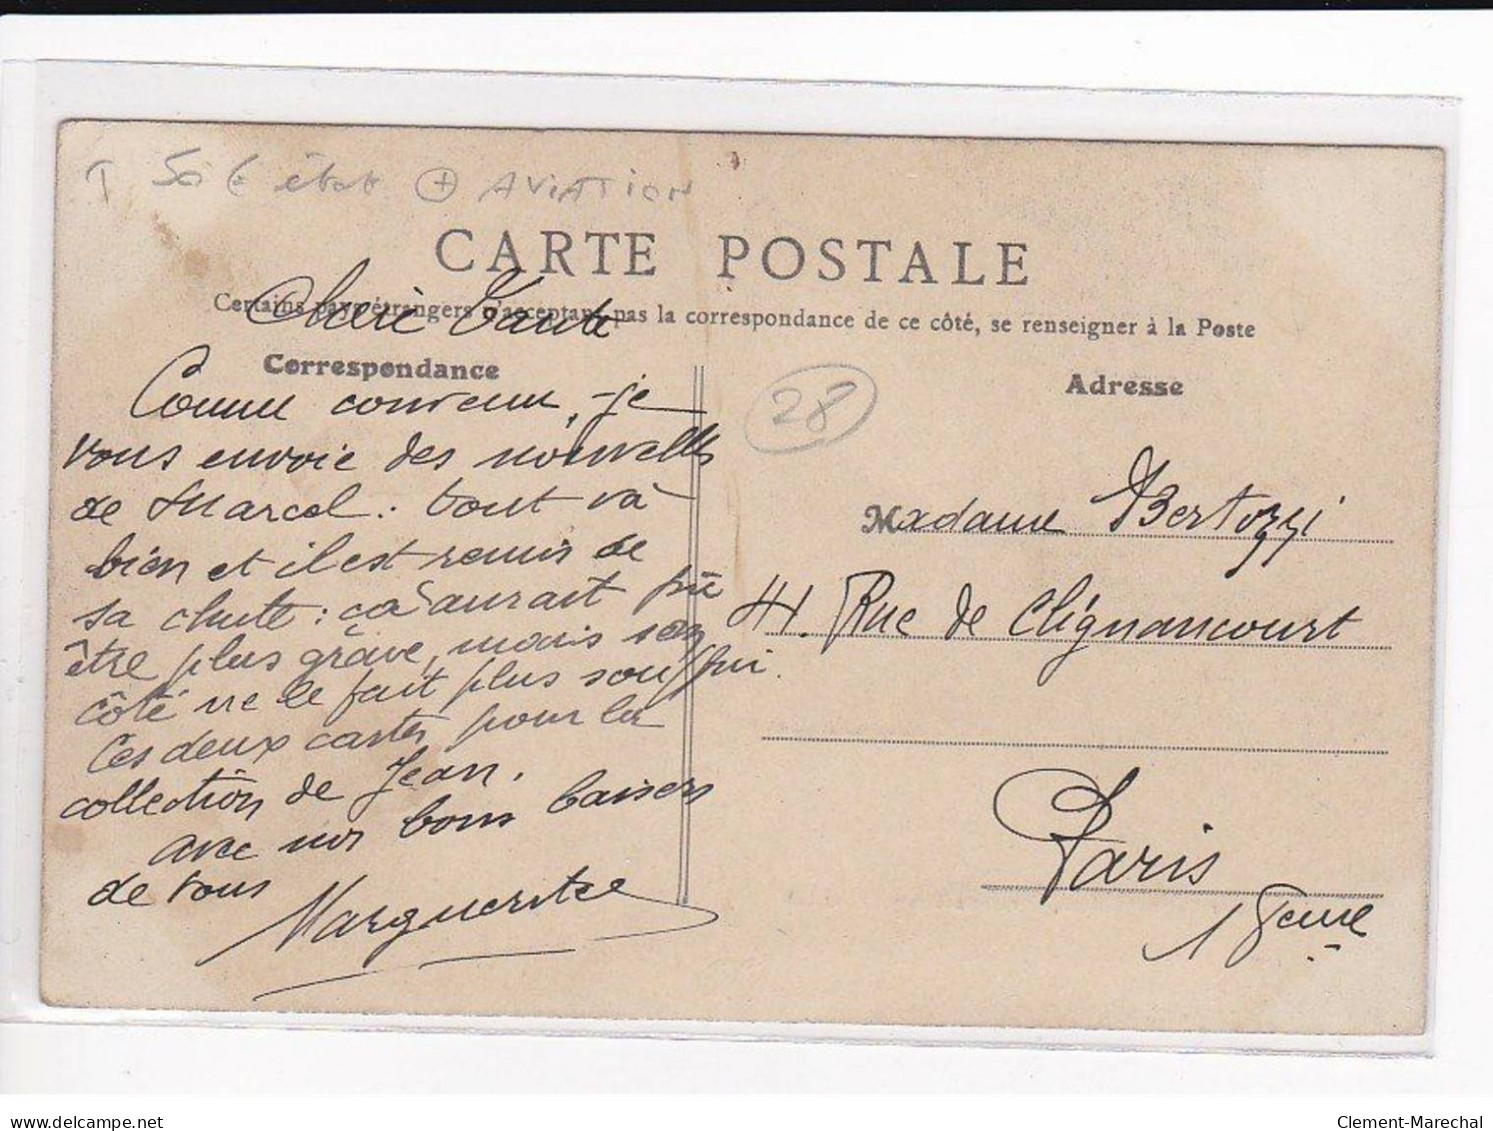 50 € état + AVIATION
CARTE POSTALE
Certains pays étrangers n'acceptant pas la correspondance de ce côté, se renseigner à la Poste
Chère Tante
Correspondance
Comme convenu, je
vous envoie des nouvelles
de Marcel. tout va
bien et il est remis de
sa chute : ça aurait pu
être plus grave, mais son
côté ne le fait plus souffrir.
Ces deux cartes pour la
collection de Jean.
avec nos bons baisers
de vous
Marguerite
28
Adresse
Madame Bertozzi
41. Rue de Clignancourt
Paris
Seine
delcampe.net
Clement-Marechal